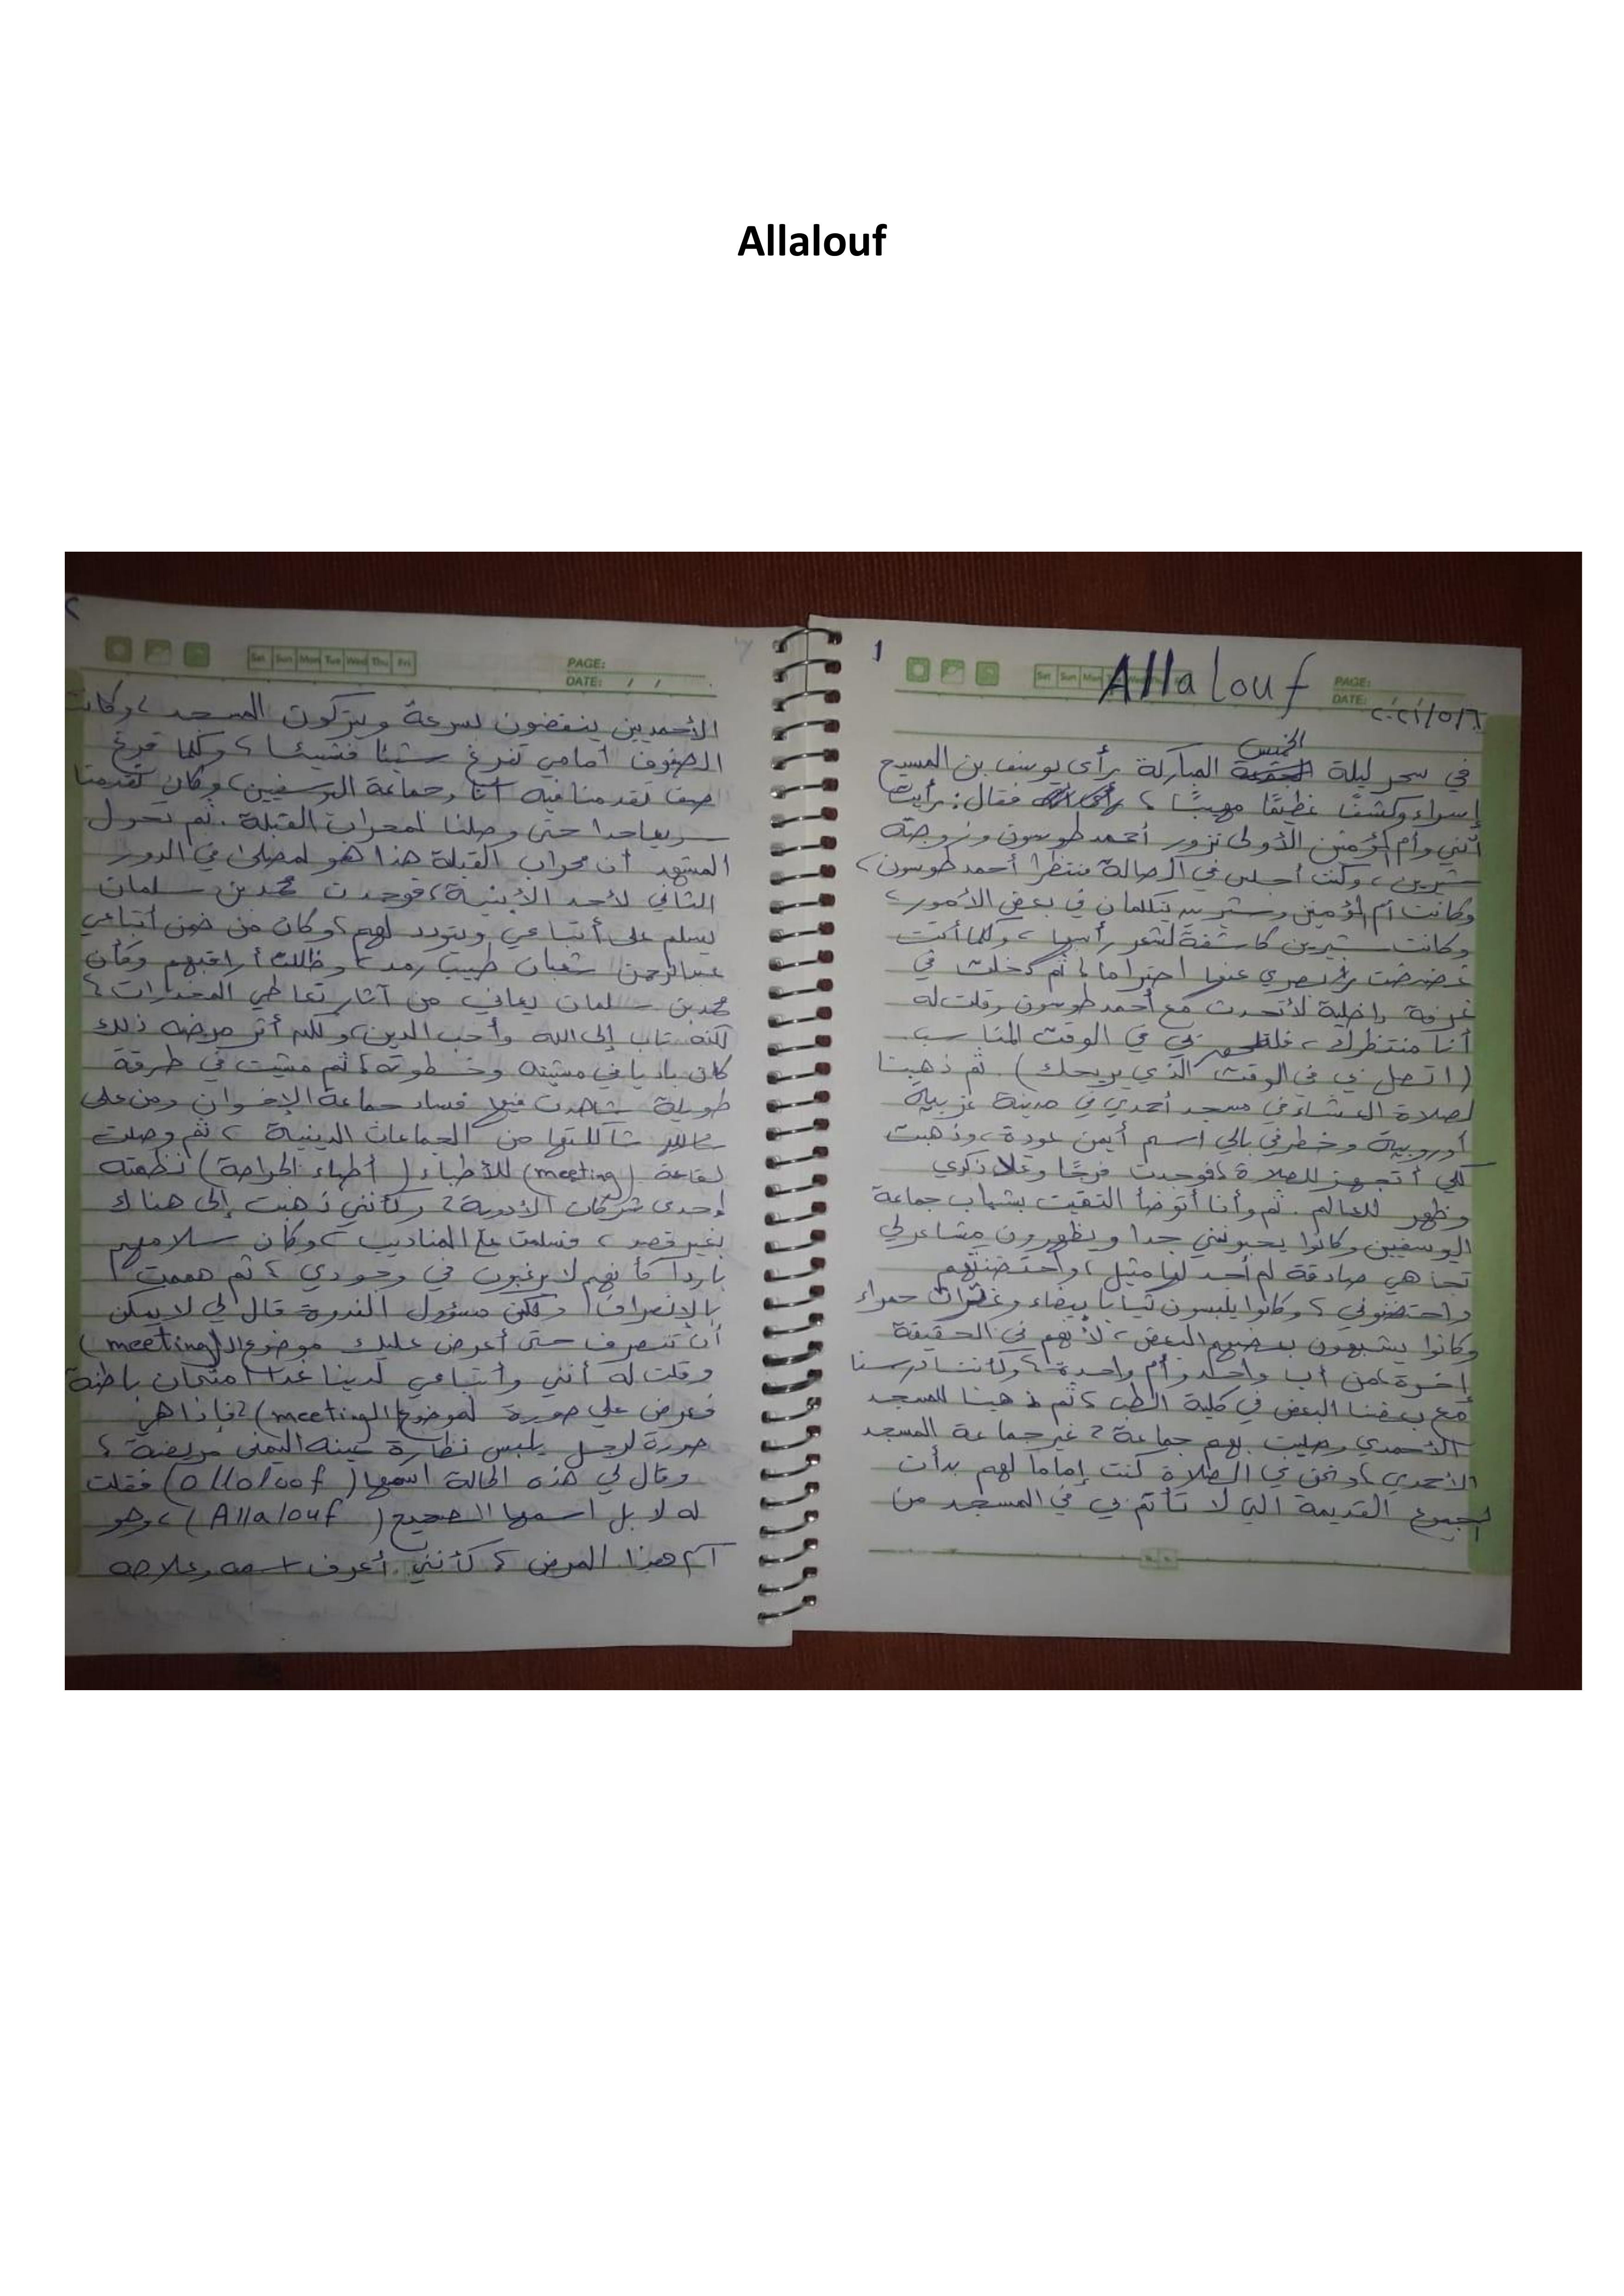 Allalouf
1
Allalouf
Sat Sun Mon
PAGE:
DATE: / /
٢٠٢١/٥/٦
الخميس
في سحر ليلة المباركة رأى يوسف بن المسيح
إسراء وكشفًا عظيمًا مهيبًا ، فقال : رأيت
أنني وأم المؤمنين الأولى نزور أحمد طوسون وزوجته
شيرين ، وكنت أجلس في الصالة منتظرا أحمد طوسون ،
وكانت أم المؤمنين وشيرين يتكلمان في بعض الأمور ،
وكانت شيرين كاشفة لشعر رأسها ، وكلما أتت
غضضت بصري عنها احتراما ، ثم دخلت في
غرفة داخلية لأتحدث مع أحمد طوسون وقلت له
أنا منتظرك ، بي في الوقت المناسب
(اتصل بي في الوقت الذي يريحك) . ثم ذهبنا
لصلاة العشاء في مسجد أحمدي في مدينة غربية
أوروبية وخطر في بالي اسم أيمن عودة ، وذهبت
لكي أتجهز للصلاة ، فوجدت فرحًا وعلا ذكري
وظهر للعالم . ثم وأنا أتوضأ التقيت بشباب جماعة
اليوسفيين وكانوا يحبونني جدا ويظهرون مشاعر لي
تجاهي صادقة لم أجد لها مثيل ، واحتضنتهم
واحتضنوني ، وكانوا يلبسون ثيابا بيضاء وغترات حمراء
وكانوا يشبهون بعضهم البعض ، لأنهم في الحقيقة
إخوة من أب واحد وأم واحدة ، وكأننا درسنا
مع بعضنا البعض في كلية الطب ، ثم ذهبنا للمسجد
الأحمدي وصليت بهم جماعة ، غير جماعة المسجد
الأحمدي ، ونحن في الصلاة كنت إماما لهم بدأت
الجموع القديمة التي لا تأتم بي في المسجد من
٢
Sat Sun Mon Tue Wed Thu Fri
PAGE:
DATE: / /
الأحمديين ينفضون بسرعة ويتركون المسجد ، وكانت
الصفوف أمامي تفرغ شيئا فشيئا ، وكلما فرغ
صف تقدمنا فيه أنا وجماعة اليوسفيين ، وكان تقدمنا
سريعا جدا حتى وصلنا لمحراب القبلة . ثم تحول
المشهد أن محراب القبلة هذا هو لمصلى في الدور
الثاني لأحد الأبنية ، فوجدت محمد بن سلمان
يسلم على أتباعي ويتودد لهم ، وكان من ضمن أتباعي
عبدالرحمن شعبان طبيب رمد ، وظللت أراقبهم وكأن
محمد بن سلمان يعاني من آثار تعاطي المخدرات ،
لكنه تاب إلى الله وأحب الدين ، ولكن أثر مرضه ذلك
كان باديا في مشيته وخطوته ، ثم مشيت في طرقة
طويلة شاهدت فيها فساد جماعة الإخوان ومن على
شاكلتها من الجماعات الدينية ، ثم وصلت
لقاعة (meeting) للأطباء (أطباء الجراحة) نظمته
إحدى شركات الأدوية ، وكأنني ذهبت إلى هناك
بغير قصد ، فسلمت على المناديب ، وكان سلامهم
باردا كأنهم لا يرغبون في وجودي ، ثم هممت
بالإنصراف ولكن مسؤول الندوة قال لي لا يمكن
أن تنصرف حتى أعرض عليك موضوع الـ(meeting)
وقلت له أنني وأتباعي لدينا غدا امتحان باطنة
فعرض علي صورة لموضوع الـ(meeting) ، فإذا هي
صورة لرجل يلبس نظارة عينه اليمنى مريضة ،
وقال لي هذه الحالة اسمها (ollolouf) فقلت
له لا بل اسمها الصحيح (Allalouf) ، وهو
اسم هذا المرض ، كأنني أعرف اسمه وعلاجه